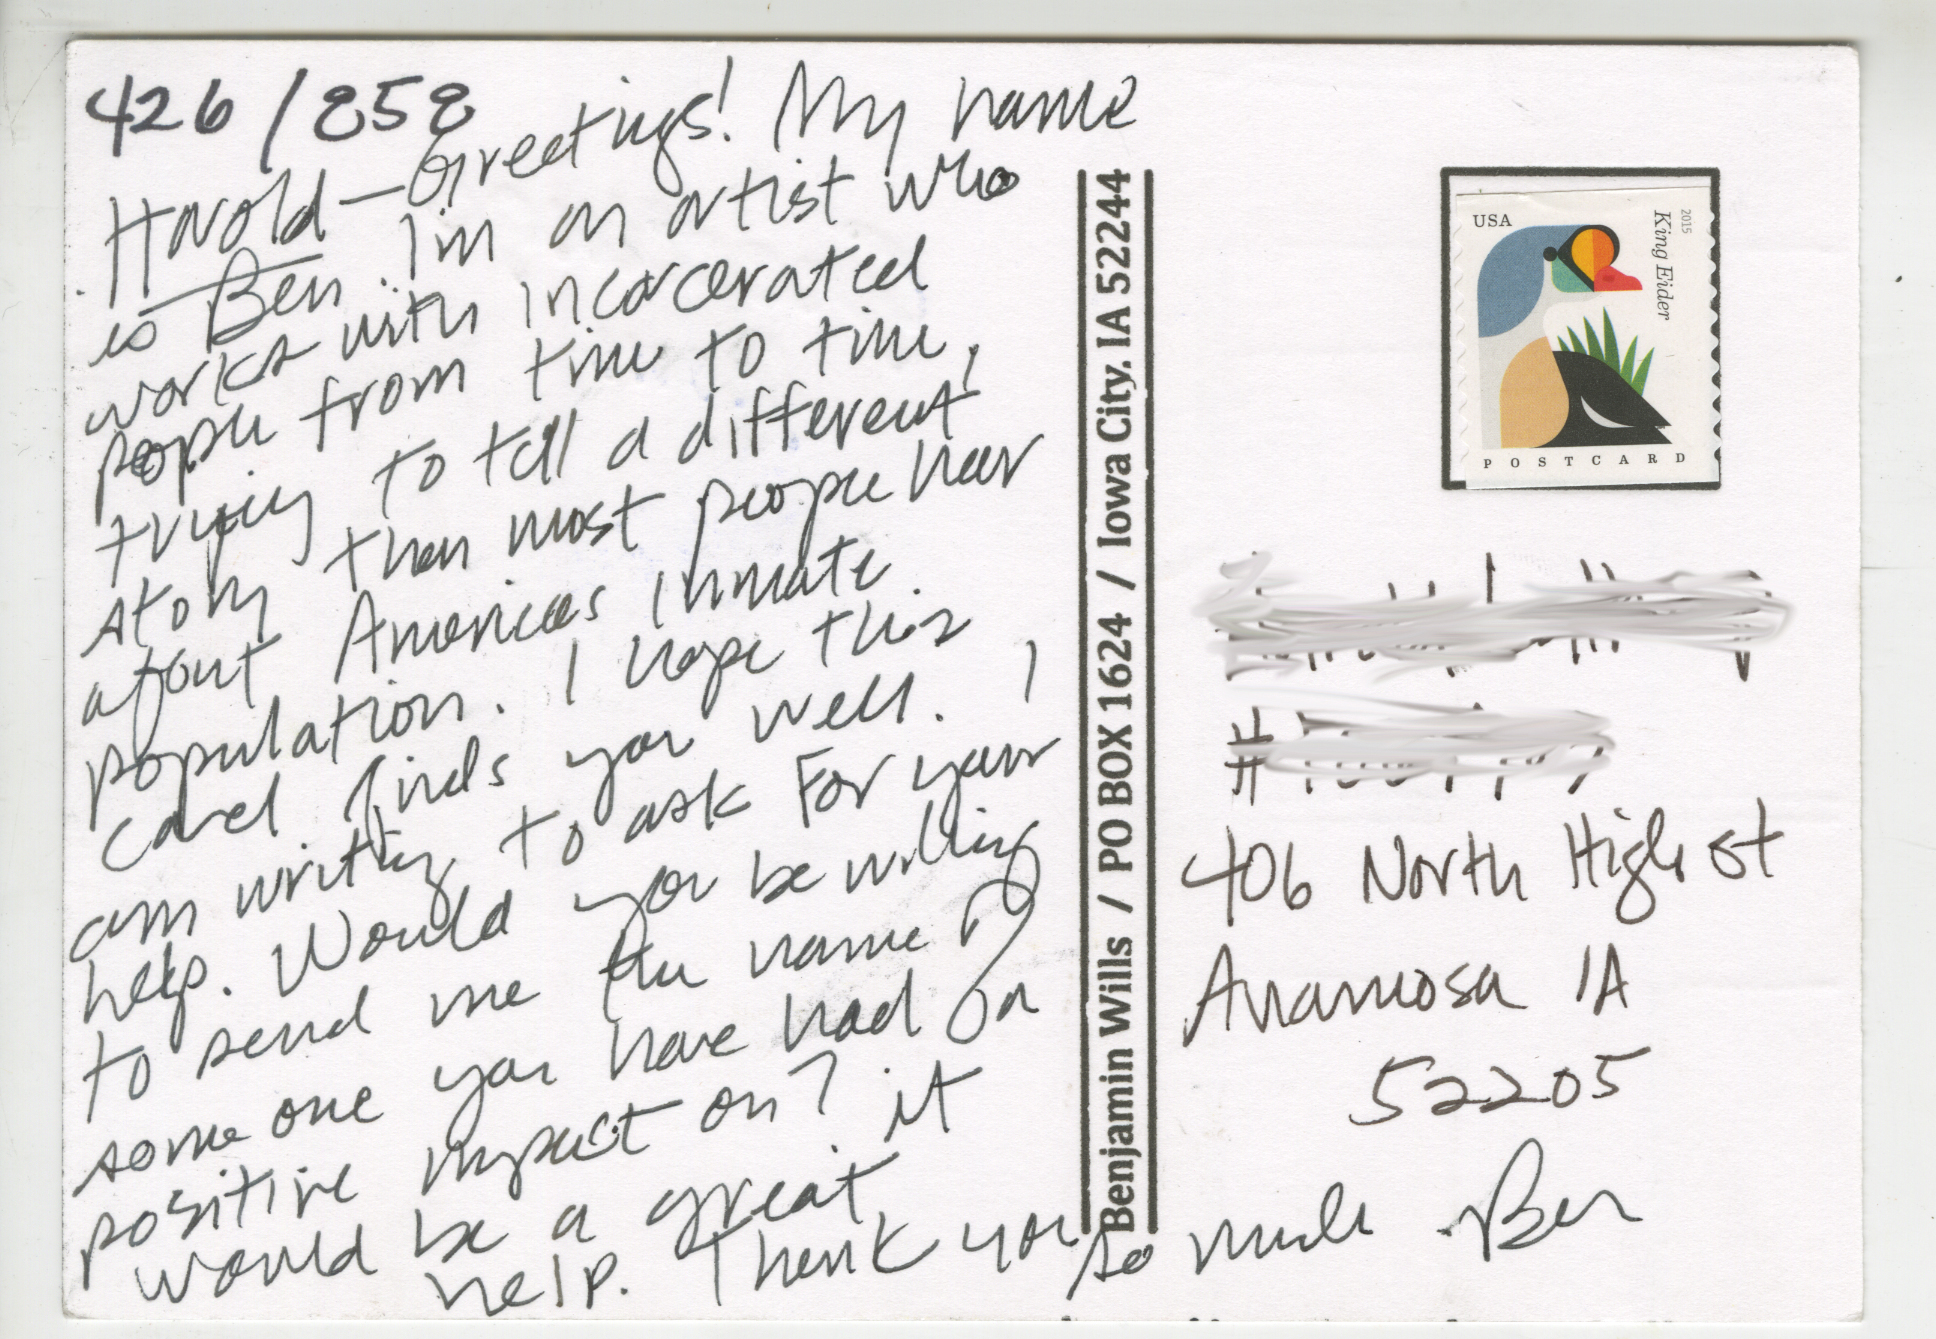 426/858
Harold—Greetings! My name
is Ben. I'm an artist who
works with incarcerated
people from time to time,
trying to tell a different
story then most people hear
about Americas inmate
population. I hope this
card finds you well. I
am writing to ask for your
help. Would you be willing
to send me the name of
some one you have had a
positive impact on? it
would be a great
help. Thank you so much Ben
Benjamin Wills / PO BOX 1624 / Iowa City. IA 52244
USA
2015
King Eider
POSTCARD
#
406 North High St
Anamosa IA
52205